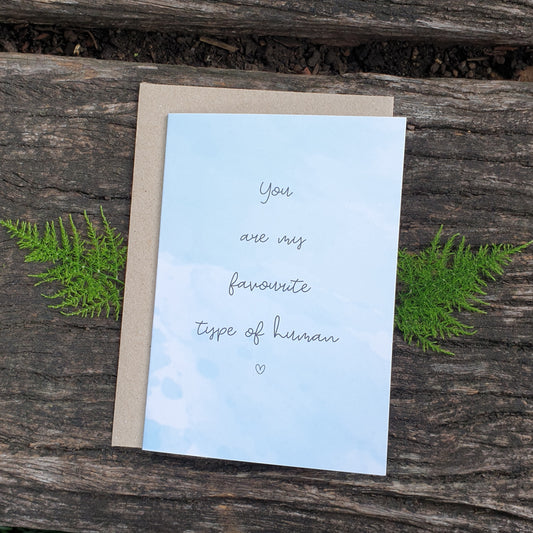 You
are my
favourite
type of human